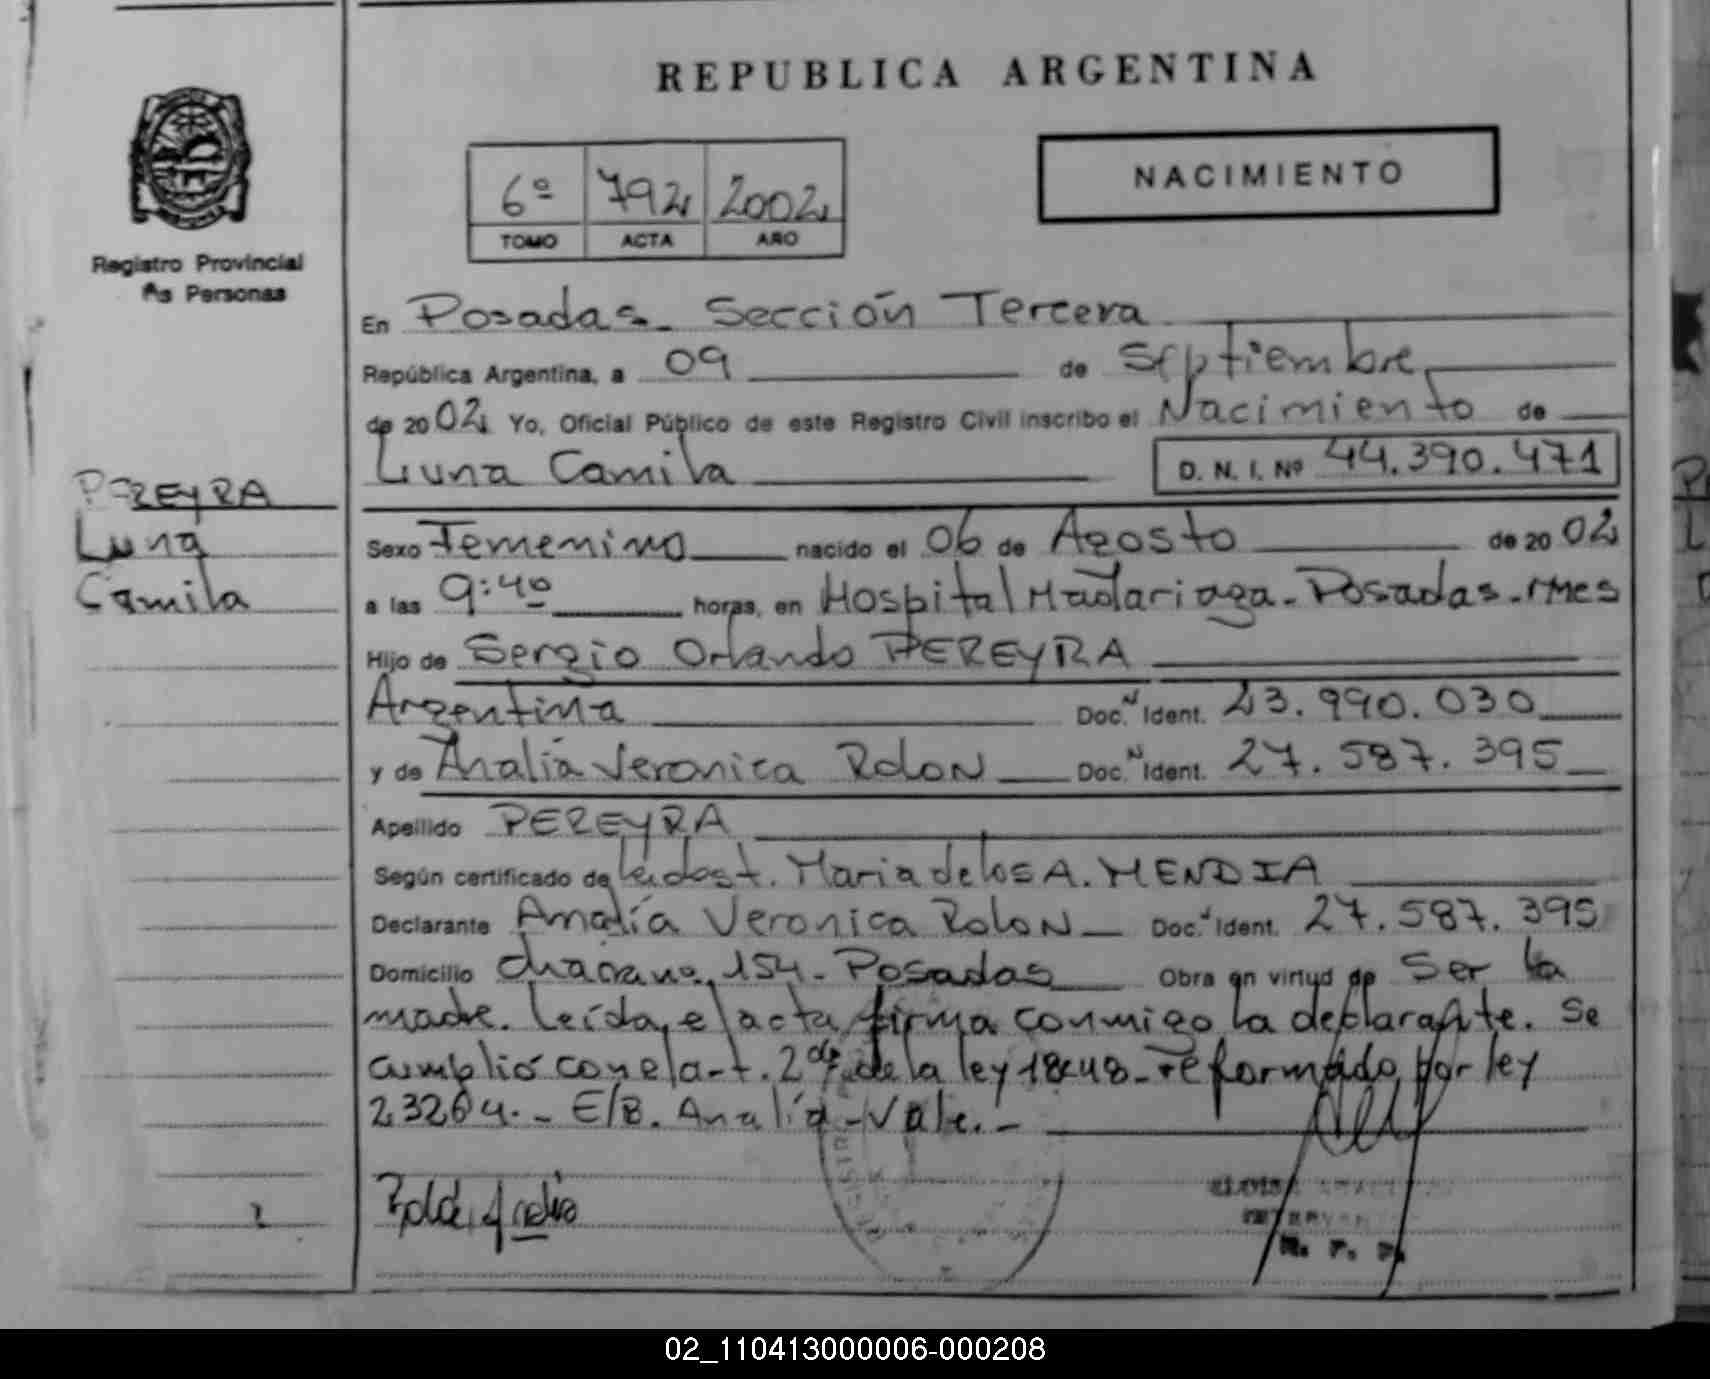 REPUBLICA ARGENTINA
NACIMIENTO
6º 792 2002
TOMO ACTA AÑO
Registro Provincial
Personas
En Posadas - Sección Tercera
República Argentina, a 09 de Septiembre
de 2002 Yo, Oficial Público de este Registro Civil inscribo el Nacimiento de
Luna Camila D. N. I. Nº 44.390.471
PEREYRA
Luna
Camila
Sexo Femenino nacido el 06 de Agosto de 2002
a las 9:40 horas, en Hospital Madariaga - Posadas - Mnes
Hijo de Sergio Orlando PEREYRA
Argentina Doc. N Ident. 23.990.030
y de Analía Veronica Rolon Doc. N Ident. 27.587.395
Apellido PEREYRA
Según certificado de Maria de los A. MENDIA
Declarante Analía Veronica Rolon Doc. N Ident. 27.587.395
Domicilio 154 - Posadas Obra en virtud de Ser la
madre. Leída el acta firma conmigo la declarante. Se
cumplió con el art. 2 de la ley reformado por ley
23264. - E/R. Analía - Vale. -
R. P. P.
02_110413000006-000208